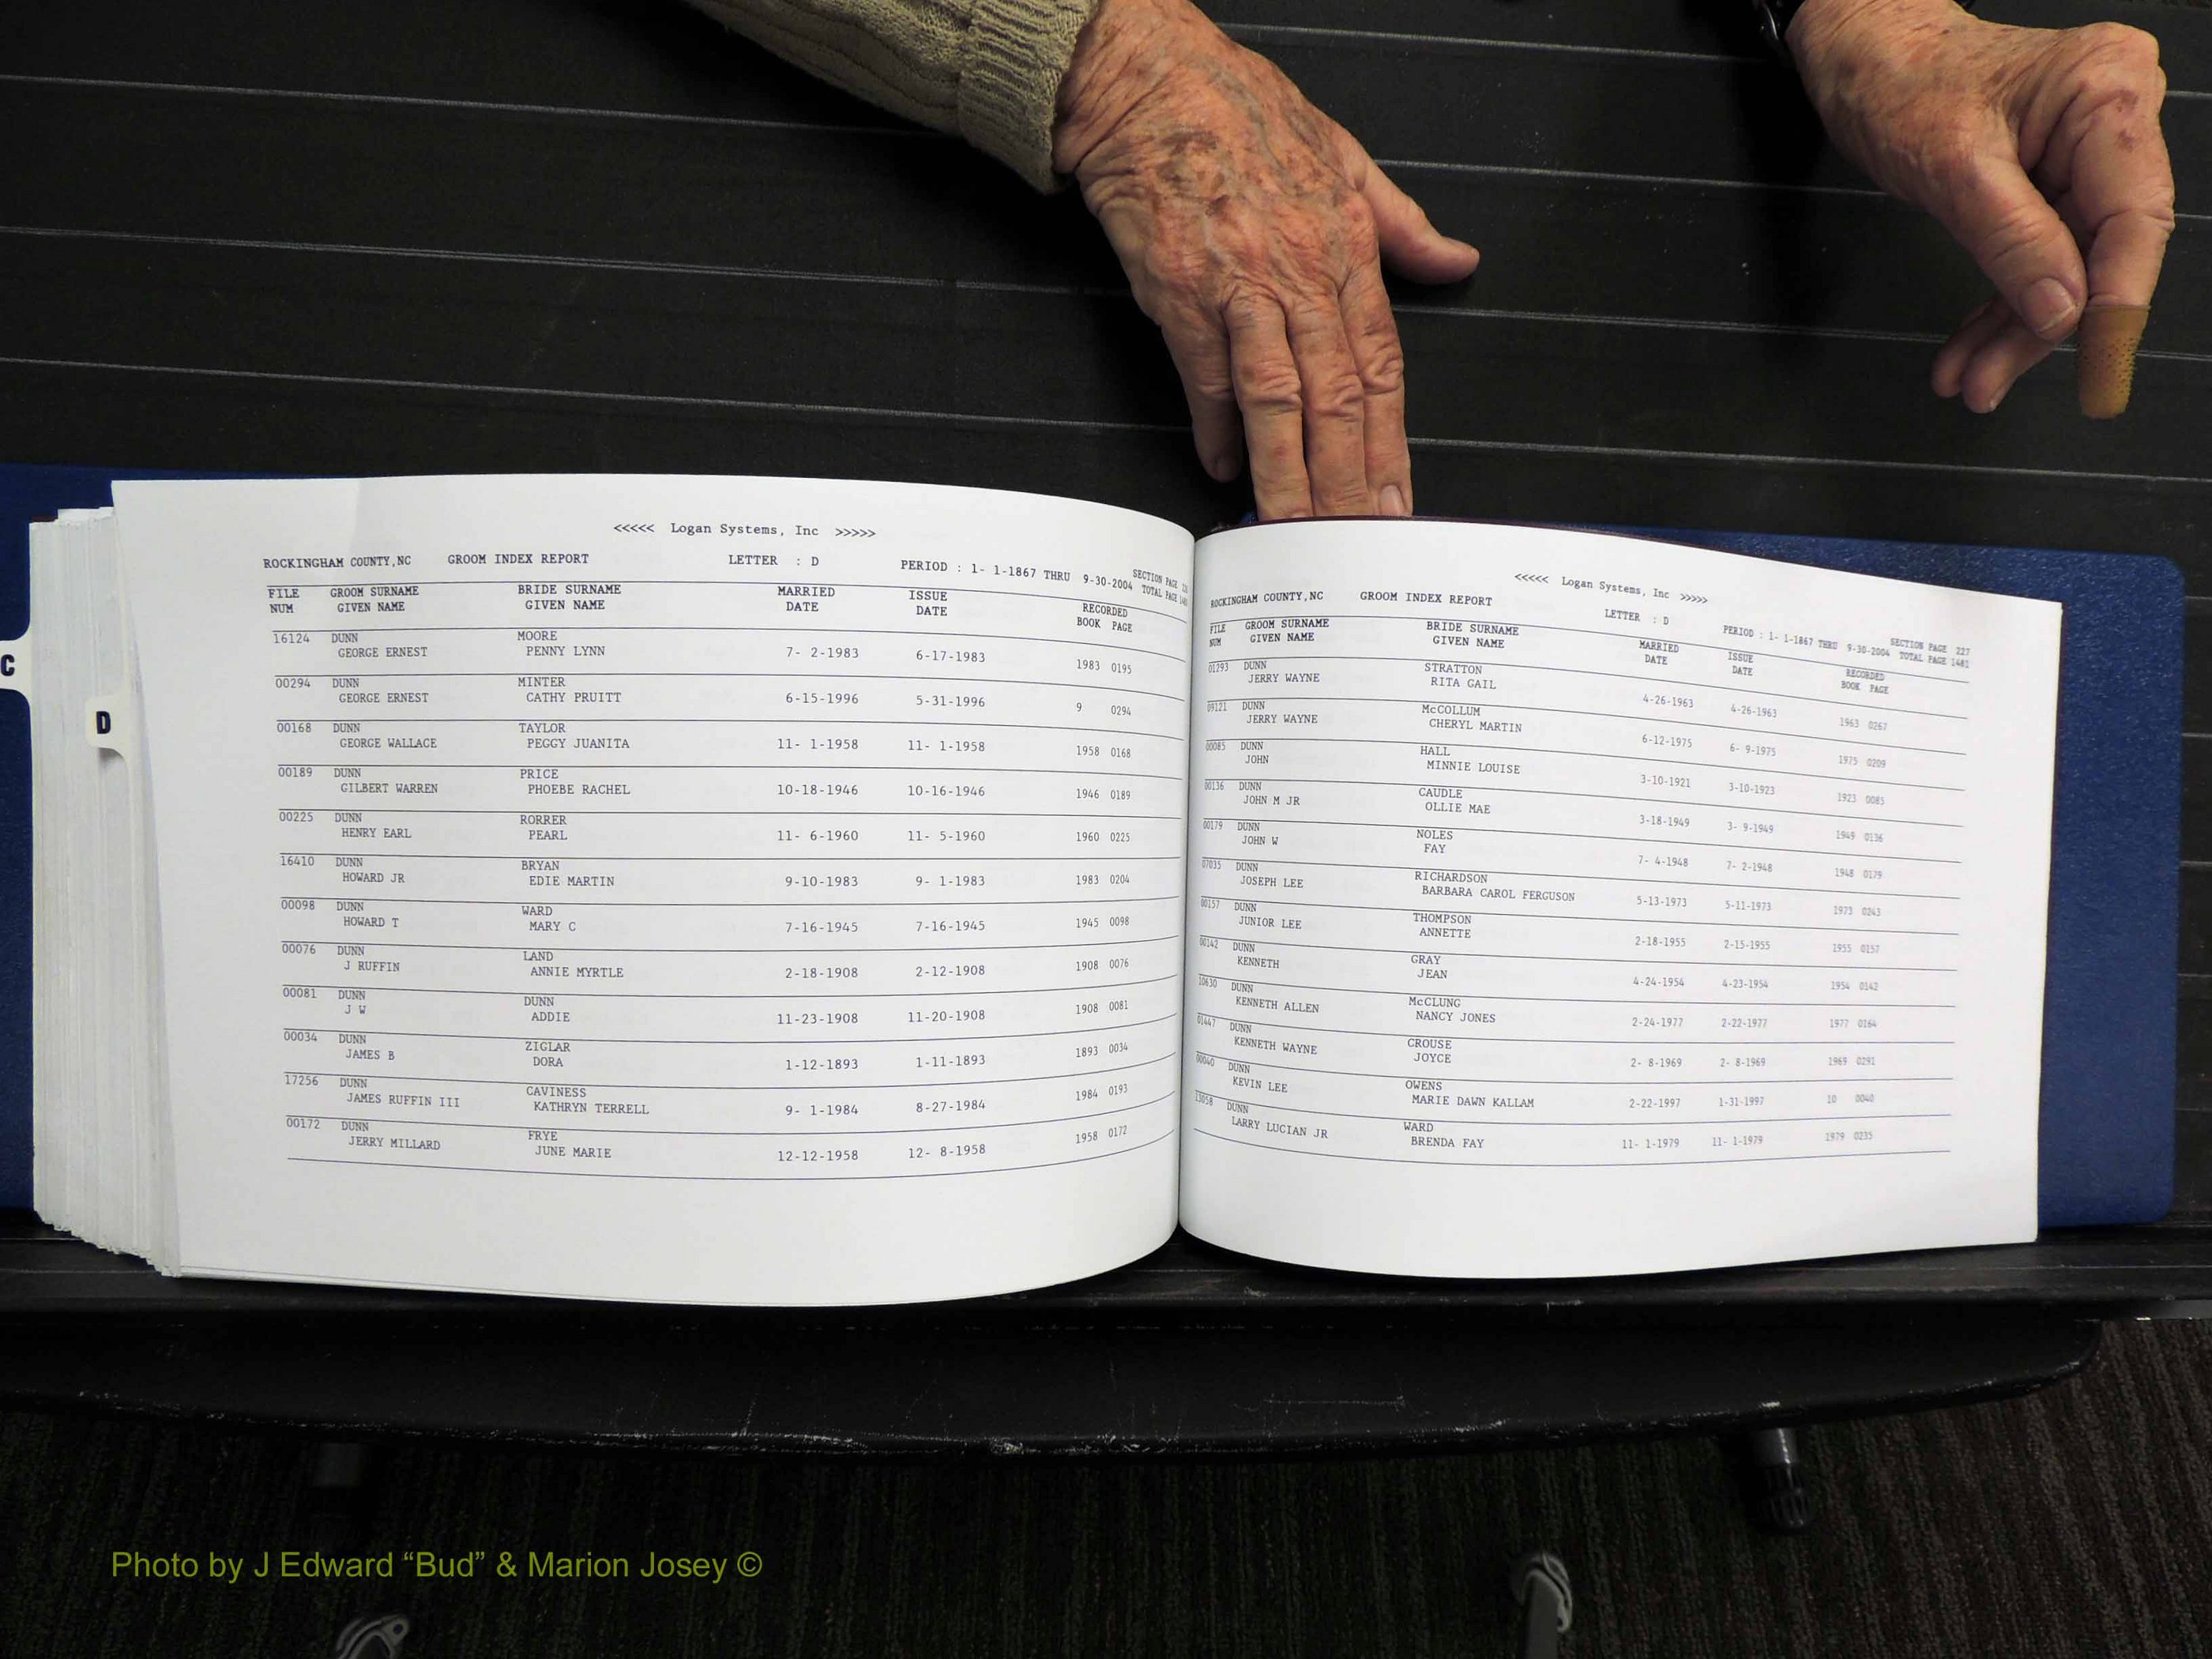 C
D
<<<<< Logan Systems, Inc >>>>>
ROCKINGHAM COUNTY,NC GROOM INDEX REPORT LETTER : D PERIOD : 1- 1-1867 THRU 9-30-2004 SECTION PAGE
TOTAL PAGE
FILE GROOM SURNAME BRIDE SURNAME MARRIED ISSUE RECORDED
NUM GIVEN NAME GIVEN NAME DATE DATE BOOK PAGE
16124 DUNN MOORE
GEORGE ERNEST PENNY LYNN 7- 2-1983 6-17-1983 1983 0195
00294 DUNN MINTER
GEORGE ERNEST CATHY PRUITT 6-15-1996 5-31-1996 9 0294
00168 DUNN TAYLOR
GEORGE WALLACE PEGGY JUANITA 11- 1-1958 11- 1-1958 1958 0168
00189 DUNN PRICE
GILBERT WARREN PHOEBE RACHEL 10-18-1946 10-16-1946 1946 0189
00225 DUNN RORRER
HENRY EARL PEARL 11- 6-1960 11- 5-1960 1960 0225
16410 DUNN BRYAN
HOWARD JR EDIE MARTIN 9-10-1983 9- 1-1983 1983 0204
00098 DUNN WARD
HOWARD T MARY C 7-16-1945 7-16-1945 1945 0098
00076 DUNN LAND
J RUFFIN ANNIE MYRTLE 2-18-1908 2-12-1908 1908 0076
00081 DUNN DUNN
J W ADDIE 11-23-1908 11-20-1908 1908 0081
00034 DUNN ZIGLAR
JAMES B DORA 1-12-1893 1-11-1893 1893 0034
17256 DUNN CAVINESS
JAMES RUFFIN III KATHRYN TERRELL 9- 1-1984 8-27-1984 1984 0193
00172 DUNN FRYE
JERRY MILLARD JUNE MARIE 12-12-1958 12- 8-1958 1958 0172
<<<<< Logan Systems, Inc >>>>>
ROCKINGHAM COUNTY,NC GROOM INDEX REPORT LETTER : D PERIOD : 1- 1-1867 THRU 9-30-2004 SECTION PAGE 227
TOTAL PAGE 1481
FILE GROOM SURNAME BRIDE SURNAME MARRIED ISSUE RECORDED
NUM GIVEN NAME GIVEN NAME DATE DATE BOOK PAGE
01293 DUNN STRATTON
JERRY WAYNE RITA GAIL 4-26-1963 4-26-1963 1963 0267
09121 DUNN McCOLLUM
JERRY WAYNE CHERYL MARTIN 6-12-1975 6- 9-1975 1975 0209
00085 DUNN HALL
JOHN MINNIE LOUISE 3-10-1921 3-10-1923 1923 0085
00136 DUNN CAUDLE
JOHN M JR OLLIE MAE 3-18-1949 3- 9-1949 1949 0136
00179 DUNN NOLES
JOHN W FAY 7- 4-1948 7- 2-1948 1948 0179
07035 DUNN RICHARDSON
JOSEPH LEE BARBARA CAROL FERGUSON 5-13-1973 5-11-1973 1973 0243
00157 DUNN THOMPSON
JUNIOR LEE ANNETTE 2-18-1955 2-15-1955 1955 0157
00142 DUNN GRAY
KENNETH JEAN 4-24-1954 4-23-1954 1954 0142
10630 DUNN McCLUNG
KENNETH ALLEN NANCY JONES 2-24-1977 2-22-1977 1977 0164
01447 DUNN CROUSE
KENNETH WAYNE JOYCE 2- 8-1969 2- 8-1969 1969 0291
00040 DUNN OWENS
KEVIN LEE MARIE DAWN KALLAM 2-22-1997 1-31-1997 10 0040
13058 DUNN WARD
LARRY LUCIAN JR BRENDA FAY 11- 1-1979 11- 1-1979 1979 0235
Photo by J Edward “Bud” & Marion Josey ©